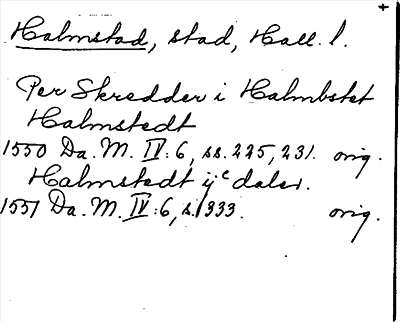 +
Halmstad, stad, Hall. l.
Per Skredder i Halmbstet
Halmstedt
1550 Da. M. IV:6, ss. 225, 231. orig.
Halmstedt ijᶜ daler.
1551 Da. M. IV:6, s. 333. orig.